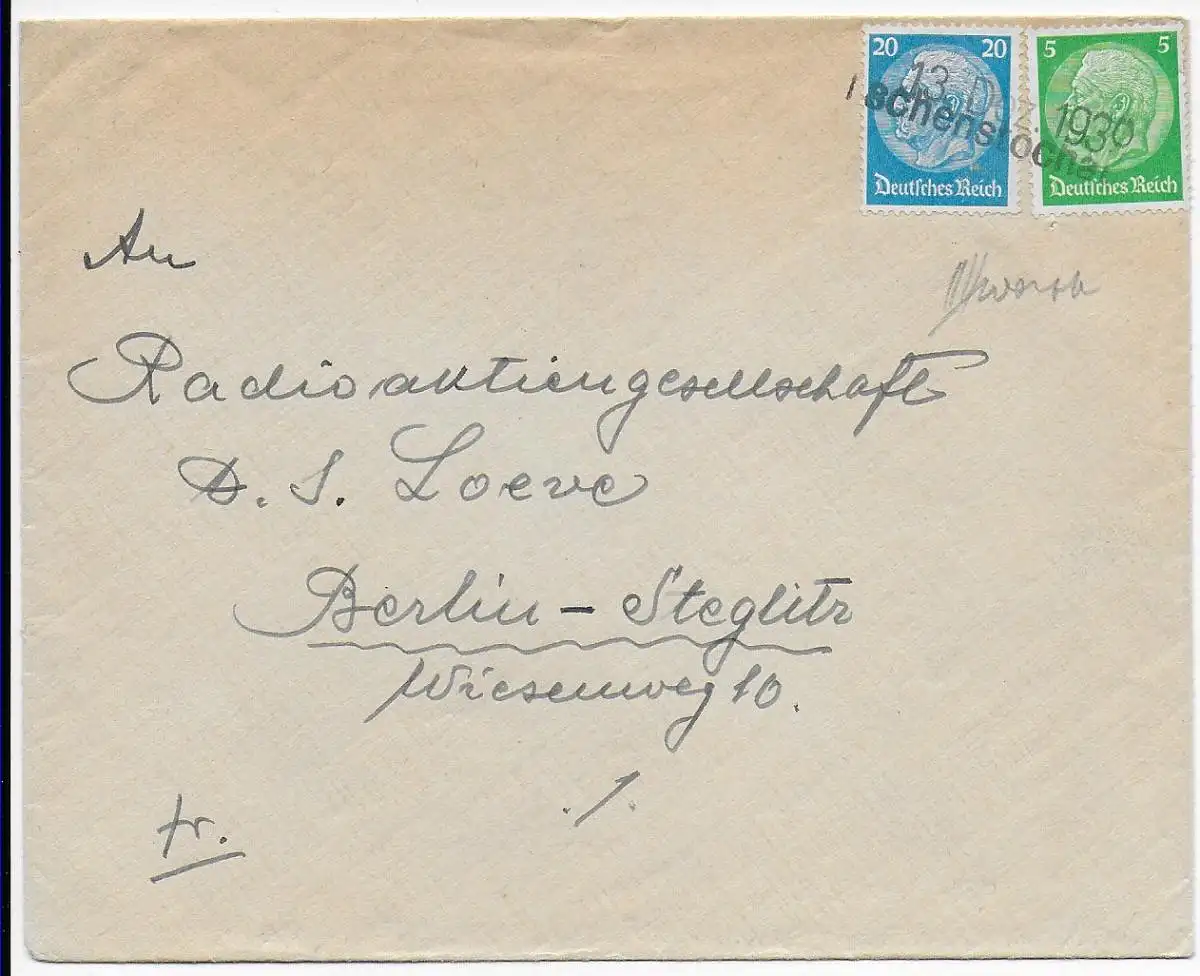 20 20
5 5
13. Dez. 1936
Tschenstochau
Deutsches Reich
Deutsches Reich
An
Radioaktiengesellschaft
D. S. Loewe
Berlin - Steglitz
Wiesenweg 10.
./.
fr.